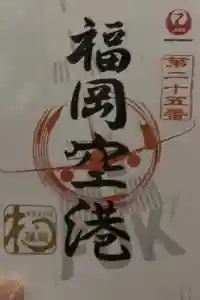 福岡空港
第二十五番
FUK